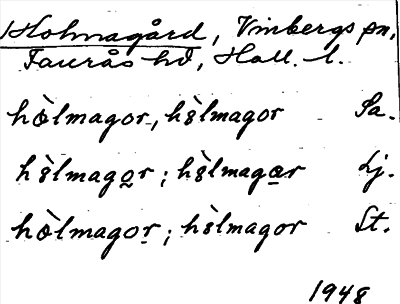 Holmagård, Vinbergs sn,
Faurås hd, Hall. l.
hò̵lmagor, hs̀lmagor Sa.
hs̀lmago̲r ; hs̀lmaga̲r Lj.
hò̵lmagor̲ ; hs̀lmagor St.
1948